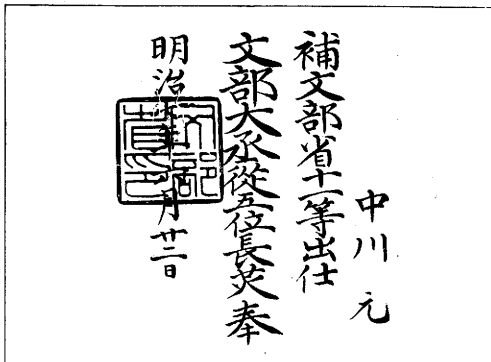 中川 元
補文部省十一等出仕
文部大丞從五位長炗奉
明治五年 月廿二日
文部省印